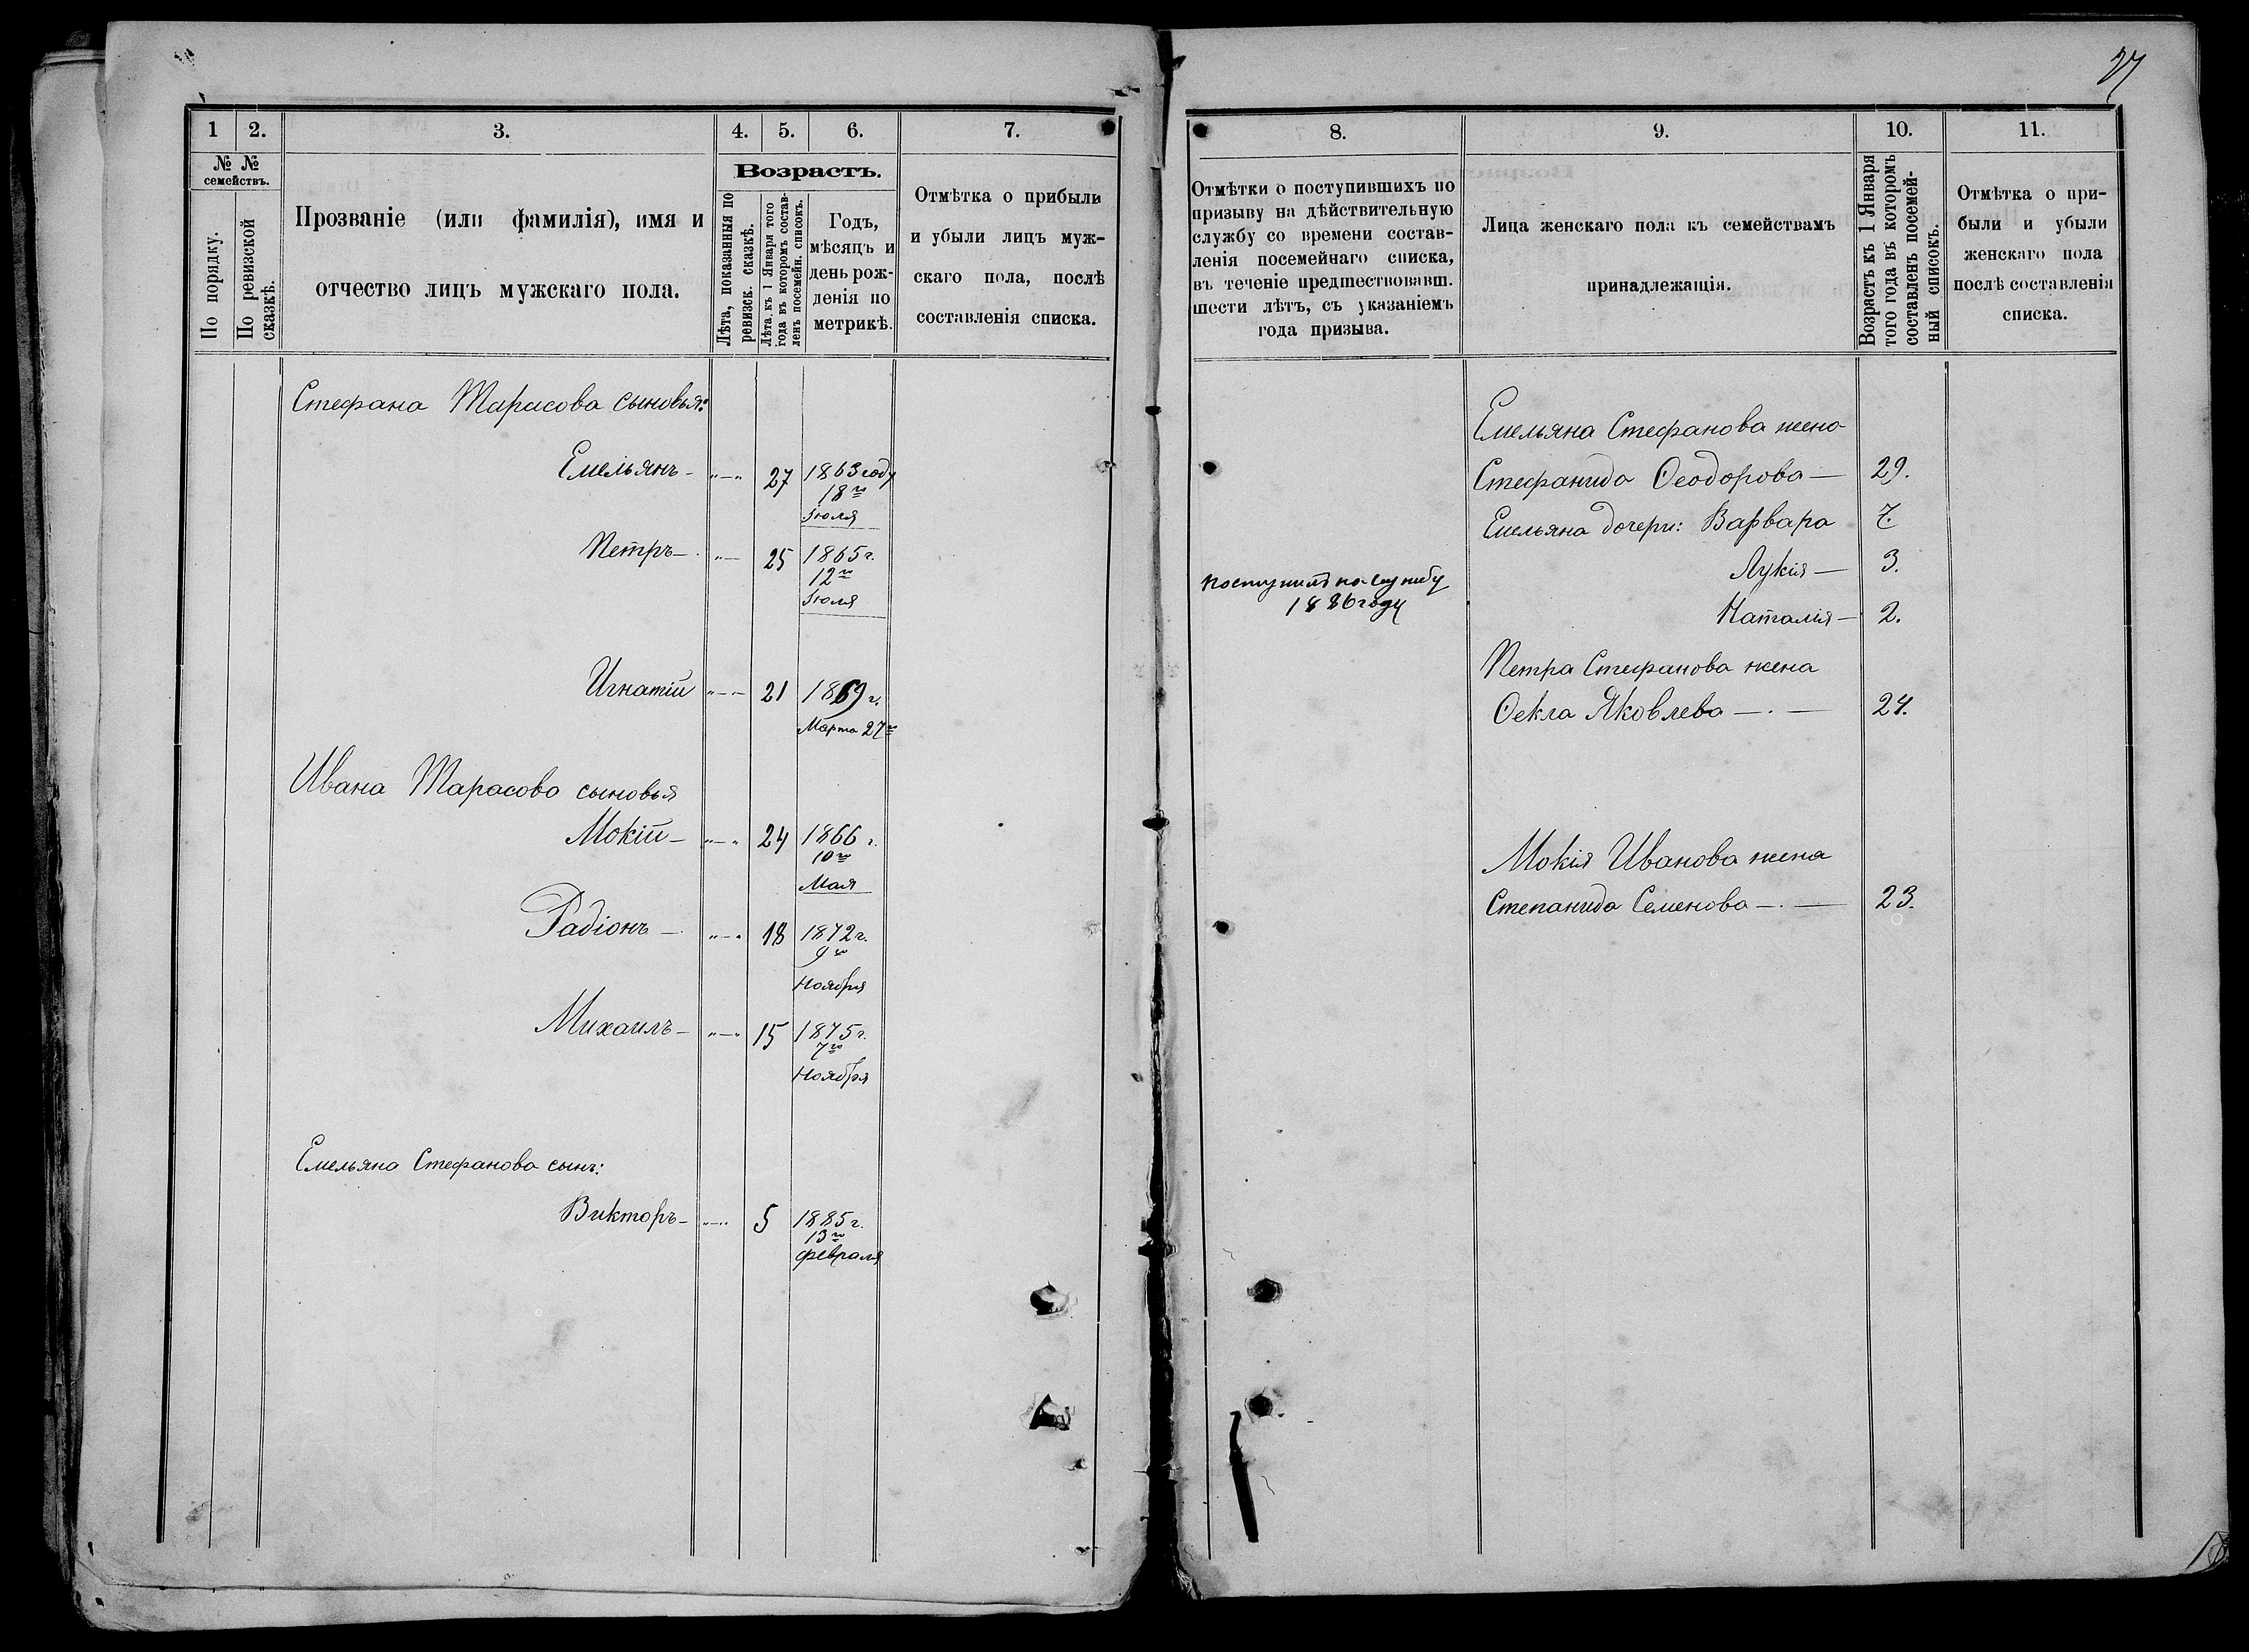 27
1
2.
3.
4.
5.
6.
7.
№ №
семействъ.
По порядку.
По ревизской
сказкѣ.
Прозваніе (или фамилія), имя и
отчество лицъ мужскаго пола.
Возрастъ.
Лѣта, показанныя по
ревизск. сказкѣ.
Лѣта, къ 1 Января того
года въ которомъ состав-
ленъ посемейн. списокъ.
Годъ,
мѣсяцъ и
день рож-
денія по
метрикѣ.
Отмѣтка о прибыли
и убыли лицъ муж-
скаго пола, послѣ
составленія списка.
Стефана Тарасова сыновья:
Емельянъ - „—„ 27 1863 году
18го
Іюля
Петръ - „— 25 1865 г.
12го
Іюля
Игнатій „—„ 21 1869 г.
Марта 27го
Ивана Тарасова сыновья
Мокій - „—„ 24 1866 г.
10го
Мая
Радіонъ - „—„ 18 1872 г.
9го
Ноября
Михаилъ - „—„ 15 1875 г.
7го
Ноября
Емельяна Стефанова сынъ:
Викторъ - „—„ 5 1885 г.
13го
февраля
8.
9.
10.
11.
Отмѣтки о поступившихъ по
призыву на дѣйствительную
службу со времени состав-
ленія посемейнаго списка,
въ теченіе предшествовавш.
шести лѣтъ, съ указаніемъ
года призыва.
Лица женскаго пола къ семействамъ
принадлежащія.
Возрастъ къ 1 Января
того года въ которомъ
составленъ посемей-
ный списокъ.
Отмѣтка о при-
были и убыли
женскаго пола
послѣ составленія
списка.
Емельяна Стефанова жена
Стефанида Ѳеодорова — 29.
Емельяна дочери: Варвара 7.
Лукія — 3.
поступилъ на службу
1886 году
Наталія — 2.
Петра Стефанова жена
Ѳекла Яковлева —.— 24.
Мокія Иванова жена
Степанида Семенова —.— 23.